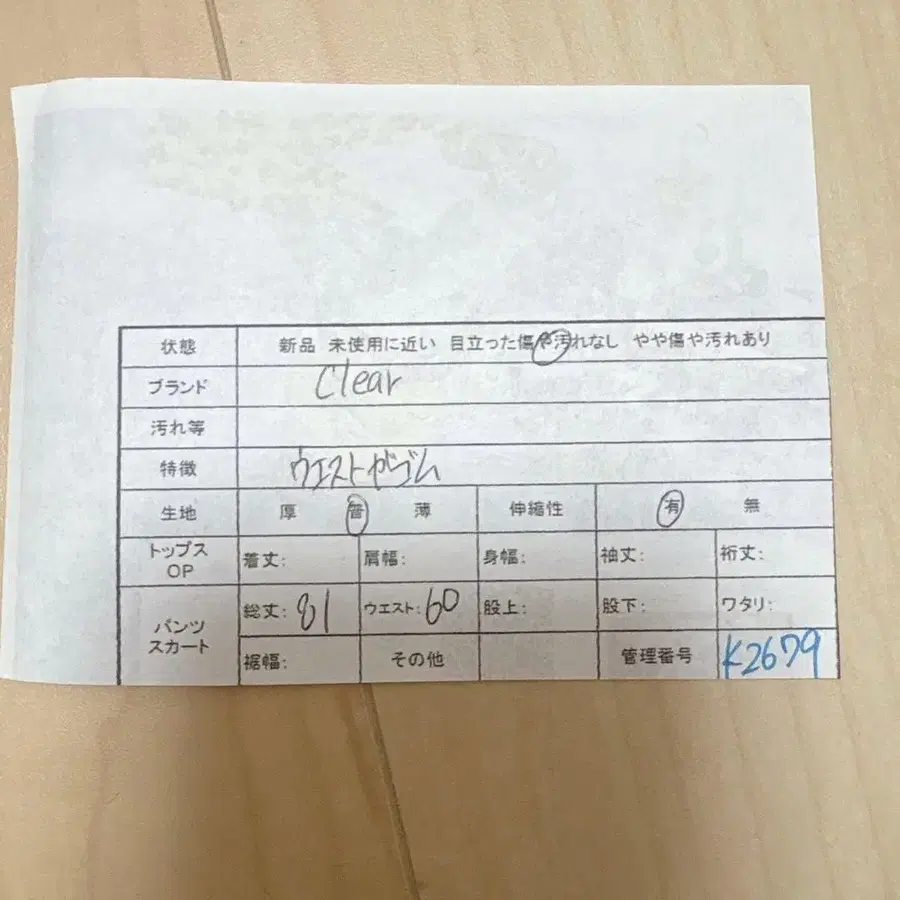 状態 新品 未使用に近い 目立った傷や汚れなし やや傷や汚れあり
ブランド Clear
汚れ等
特徴 ウエストがゴム
生地 厚 普 薄 伸縮性 有 無
トップス OP 着丈: 肩幅: 身幅: 袖丈: 裄丈:
パンツ スカート 総丈: 81 ウエスト: 60 股上: 股下: ワタリ:
裾幅: その他 管理番号 K2679